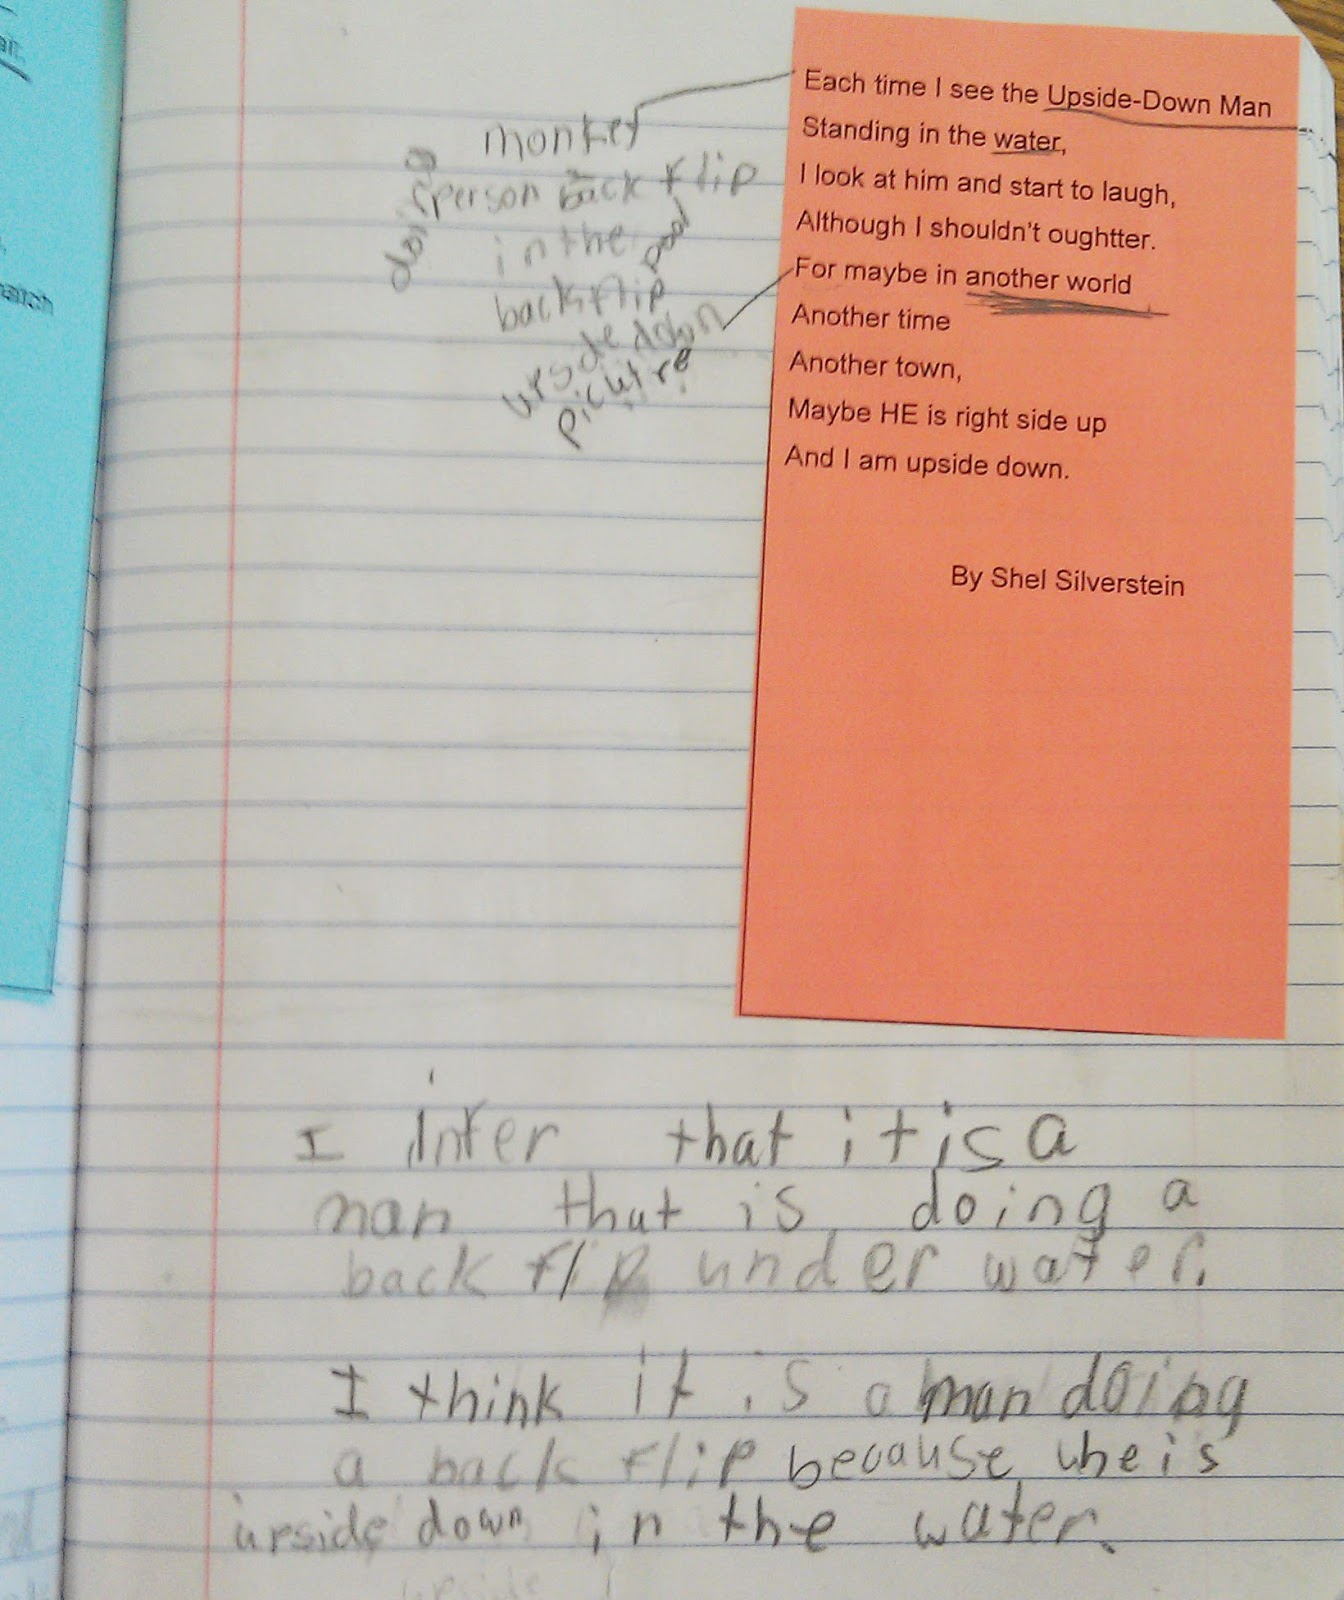 Each time I see the Upside-Down Man
Standing in the water,
I look at him and start to laugh,
Although I shouldn't oughtter.
For maybe in another world
Another time
Another town,
Maybe HE is right side up
And I am upside down.
By Shel Silverstein
monkey
person back flip
doing a
in the pool
backflip
upside down
pictire
I infer that it is a
man that is doing a
back flip under water.
I think it is a man doing
a back flip because he is
upside down in the water.
upside